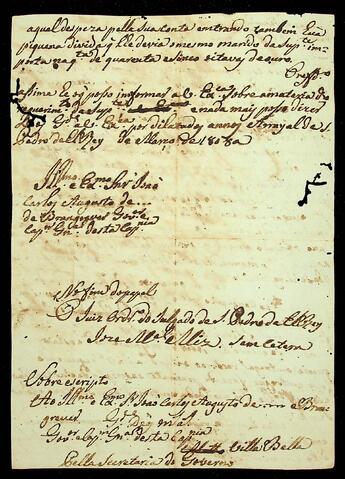 aqual despeza pella sua conta entrando tambem Euca
piquena divida q lhe devia o mesmo marido da Supte im-
porta na qta de quarenta e sinco oitavas de ouro.
assima he oq posso informar a V. Exca Sobre a materia do
requerimto da Supte enada mais posso dizer
Ds Gde a V. Exca por dilatados annos Arrayal de S.
Pedro del Rey de Marco de 1808 a
Illmo e Exmo Snr João
Carlos Augusto de ...
de Oeynges Govor e
Capm Genal desta Capnia
No fim do papel
O Juiz Ordro do Julgado de S. Pedro del Rey
Joze Mel
Sobre escripto
Ao Illmo e Exmo Sr João Carlos Augusto de
Gde Ds ms as
Govor e Capm Genal desta Capnia
Villa Bella
Pella Secretaria do Governo